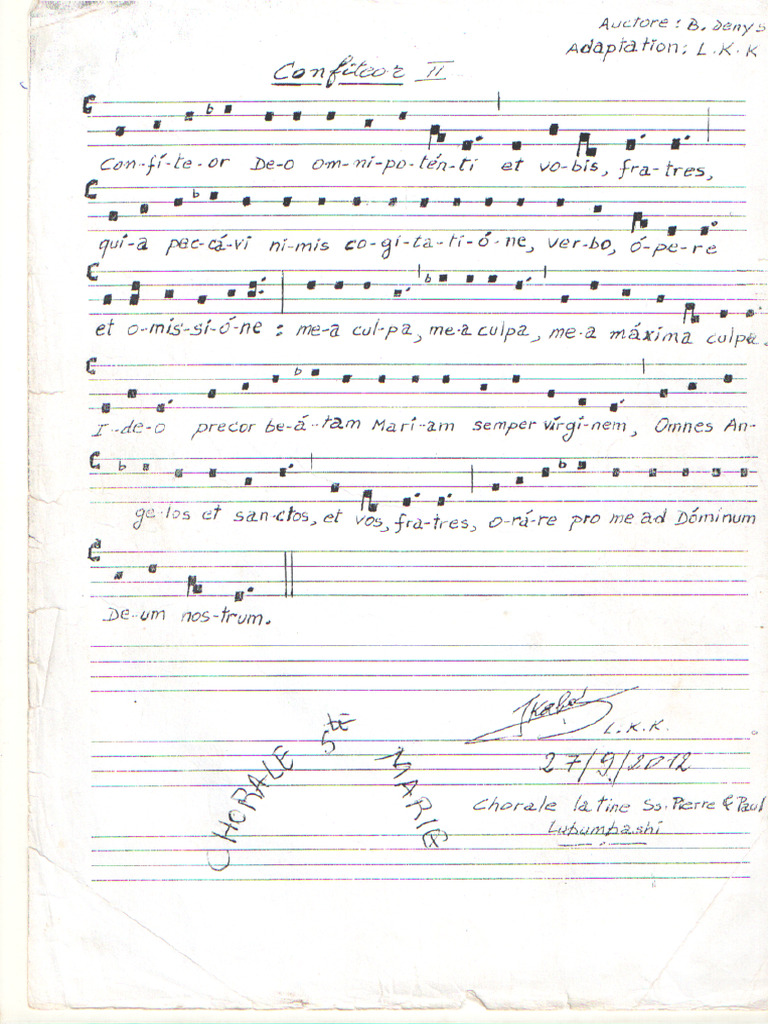 Auctore : B. Denys
Adaptation : L.K.K
Confiteor II
Con-fi-te-or De-o om-ni-po-tén-ti et vo-bis, fra-tres,
qui-a pec-cá-vi ni-mis co-gi-ta-ti-ó-ne, ver-bo, ó-pe-re
et o-mis-si-ó-ne : me-a cul-pa, me-a culpa, me-a máxima culpa.
I-de-o precor be-á-tam Mari-am semper virgi-nem, Omnes An-
ge-los et san-ctos, et vos, fra-tres, o-rá-re pro me ad Dóminum
De-um nos-trum.
L.K.K.
CHORALE Ste MARIE
27/9/2012
Chorale latine Ss. Pierre & Paul
Lubumbashi